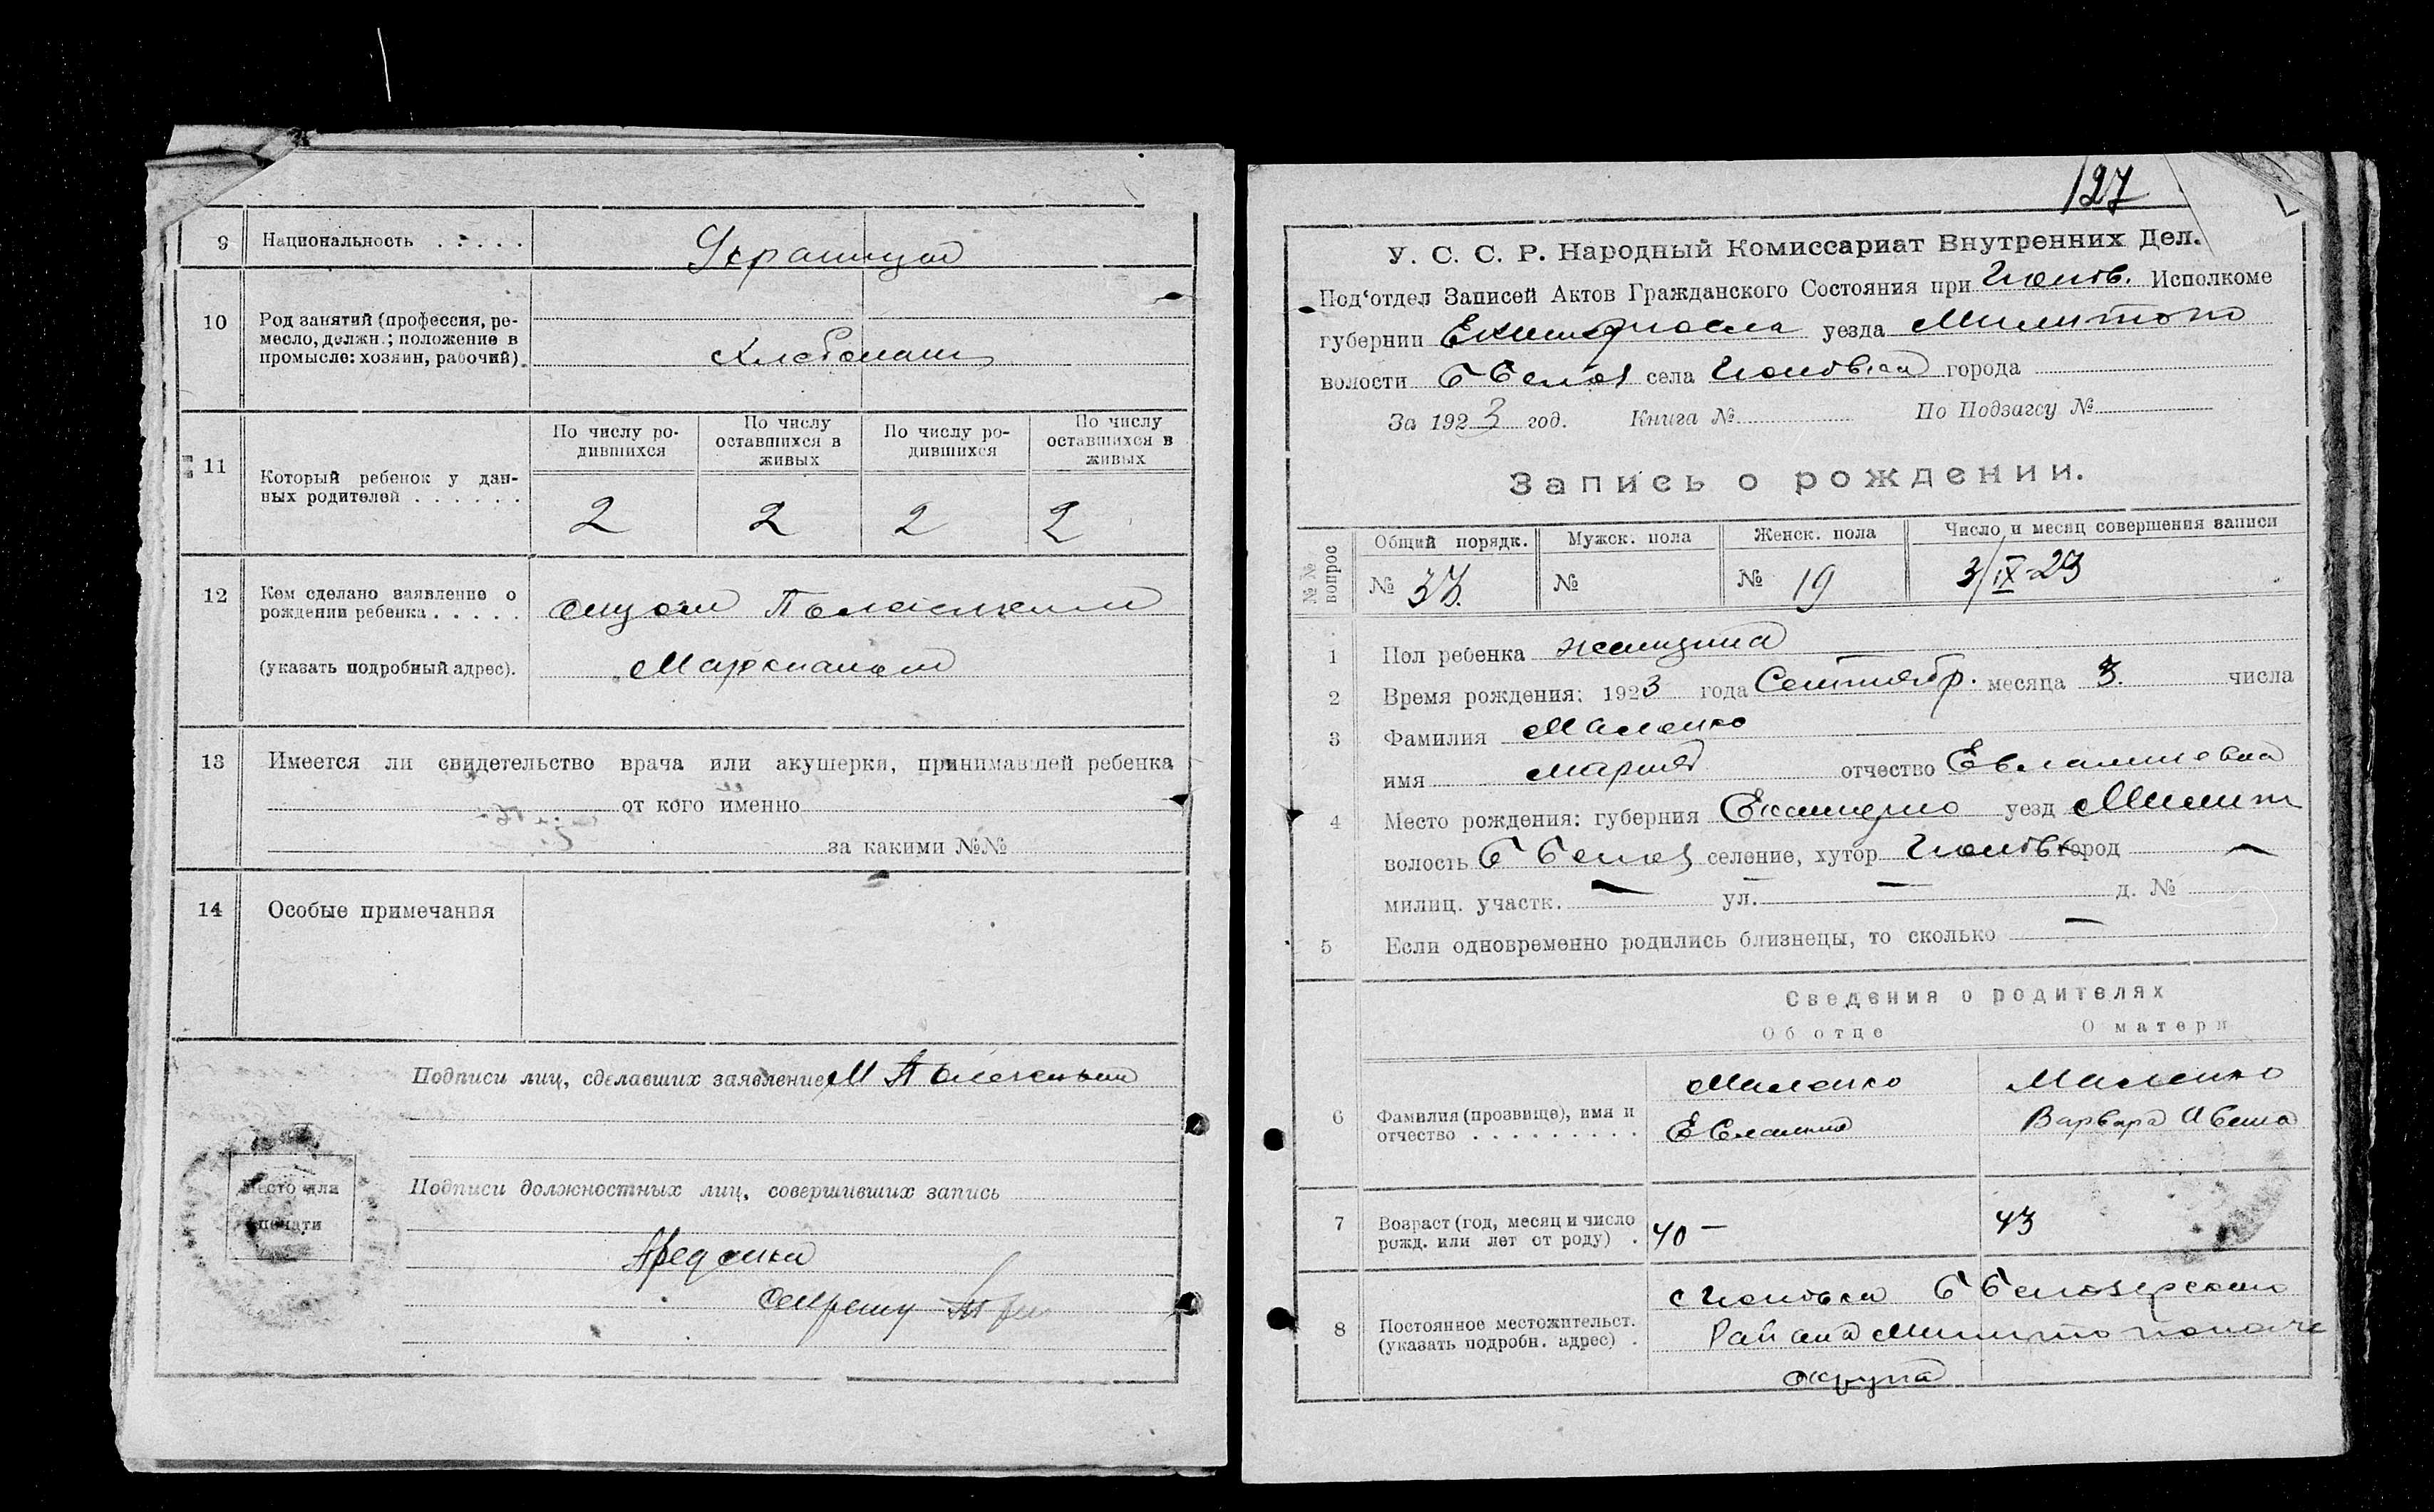 9 Национальность . . . . . Украинцы
10 Род занятий (профессия, ре-
месло, должн.; положение в
промысле: хозяин, рабочий). Хлебопаш
11 Который ребенок у дан-
ных родителей . . . . . .
По числу ро-
дившихся
По числу
оставшихся в
живых
По числу ро-
дившихся
По числу
оставшихся в
живых
2 2 2 2
12 Кем сделано заявление о
рождении ребенка . . . . .
(указать подробный адрес).
13 Имеется ли свидетельство врача или акушерки, принимавшей ребенка
от кого именно
за какими №№
14 Особые примечания
Подписи лиц, сделавших заявление М
Место для
печати
Подписи должностных лиц, совершивших запись
127
У. С. С. Р. Народный Комиссариат Внутренних Дел.
Под'отдел Записей Актов Гражданского Состояния при Исполкоме
губернии уезда Мелитопо
волости Б Белоз села города
За 1923 год. Книга № По Подзагсу №
Запись о рождении.
№№ вопрос
Общий порядк. Мужск. пола Женск. пола Число и месяц совершения записи
№ 37. № № 19 3/IX-23
1 Пол ребенка женщина
2 Время рождения: 1923 года Сентябр. месяца 3. числа
3 Фамилия Маленко
имя Мария отчество Евлампиевна
4 Место рождения: губерния Екатерино уезд Мелит
волость Б Белоз селение, хутор город —
милиц. участк. — ул. — д. №
5 Если одновременно родились близнецы, то сколько —
Сведения о родителях
Об отце О матери
6 Фамилия (прозвище), имя и
отчество . . . . . . . . .
Маленко Маленко
Евлампий Варвара
7 Возраст (год, месяц и число
рожд. или лет от роду) . 40 — 43
8 Постоянное местожительст.
(указать подробн. адрес) .
Б Белозерского
Района
округа